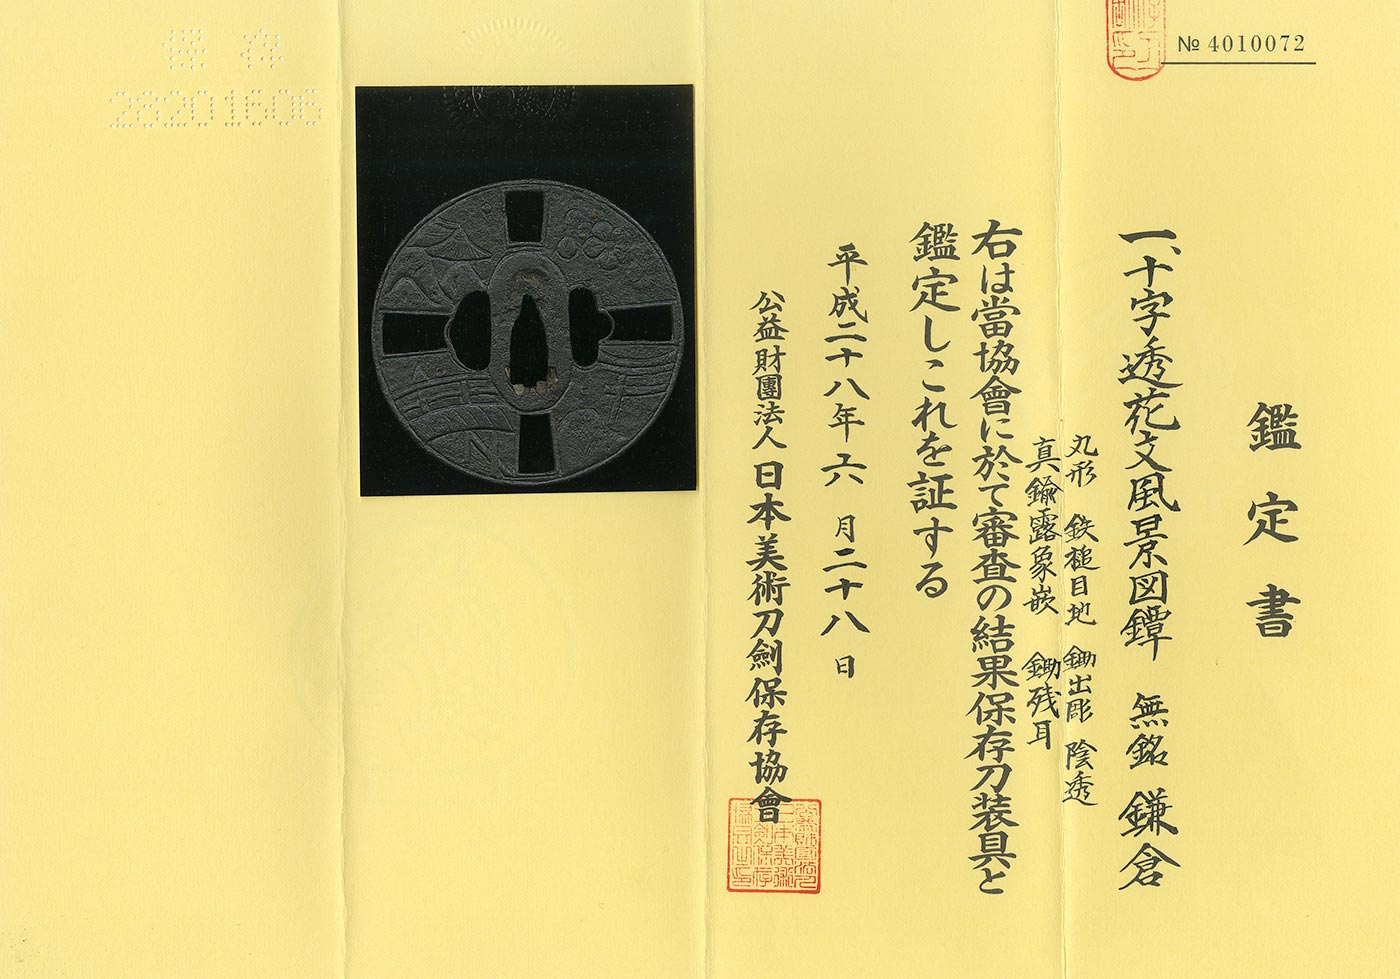 № 4010072
鑑定書
一、十字透花文風景図鐔 無銘 鎌倉
丸形 鉄槌目地 鋤出彫 陰透
真鍮露象嵌 鋤残耳
右は當協會に於て審査の結果保存刀装具と
鑑定しこれを証する
平成二十八年六月二十八日
公益財團法人日本美術刀劍保存協會
保存
28201606